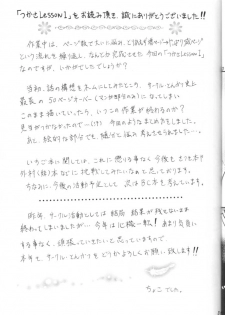 「つかさLesson1」をお読み頂き 誠にありがとうございました!!
作業中は、ページ数でえらい悩み、
という流れを繰り返し、なんとか完成できた今回の「つかさLesson1」
なのですが、いかがでしたでしょうか?
当初、話の構想をネームにおこしたみたところ、サークルてんかうん史上
最長の50ページオーバー(マンガ部分のみ)になってしまい
このまま描いていたら、いつこの作業が終わるのか?
見当がつかなかったので…(汗) 今回のようなまとめ方をしました。
また、絵的な部分でも 随分と悩み考えさせられました…。
いちご本に関しては、これに懲りる事なく 今後も
外刊(厚本)などに挑戦してみたいなぁと思っております。
ちなみに、今後の活動予定として 次はらじおを考えています。
昨年、サークル活動としては結局 結果が残せないまま
終わってしまいましたが 今年は心機一転! あまり気負い
する事なく、頑張っていきたいと思っていますので
本年も、サークルてんかうんをどうかよろしくお願い致します!!
ちょこでした。